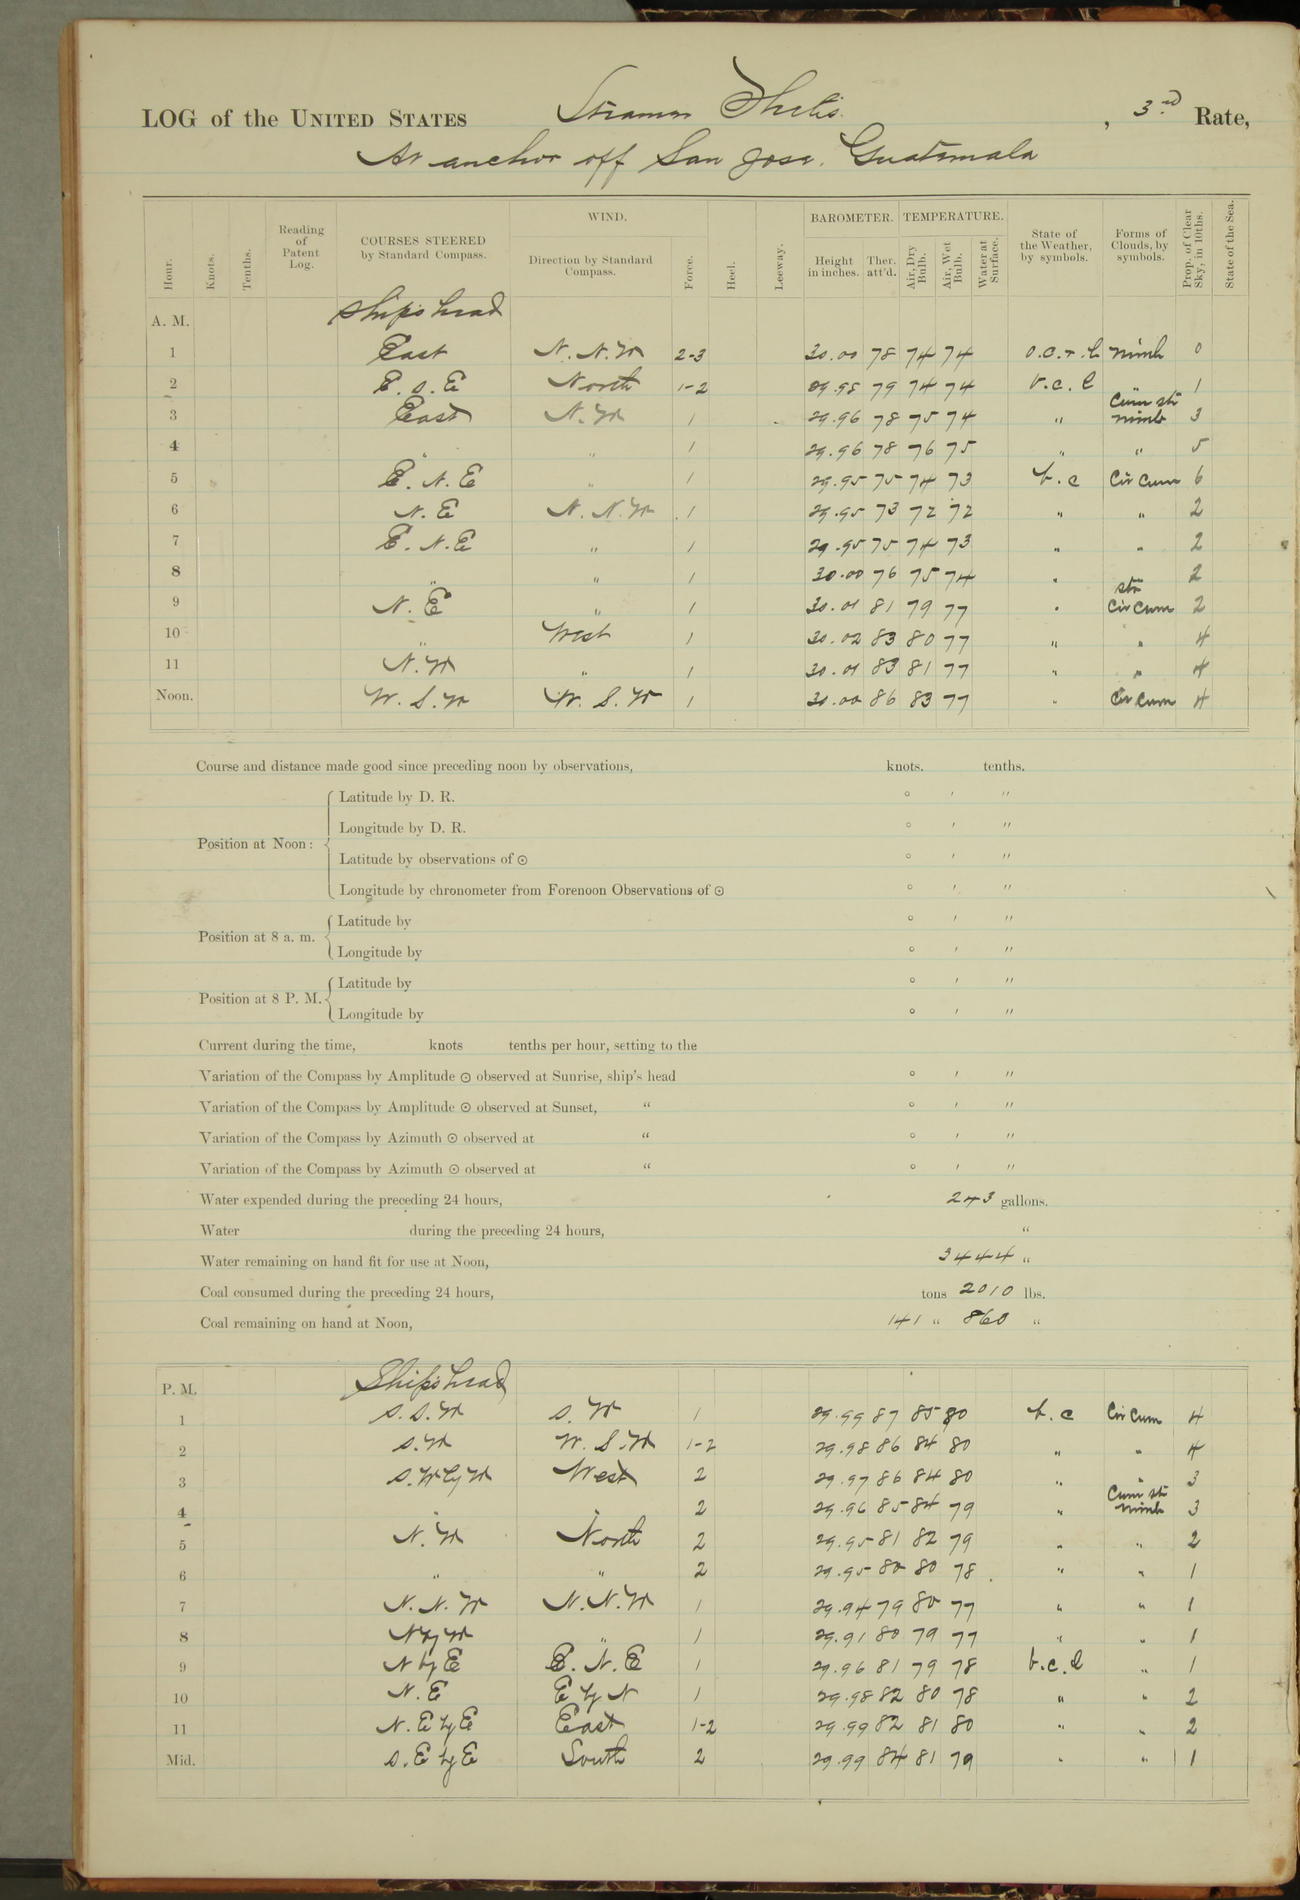 LOG of the UNITED STATES Steamer Thetis, 3rd Rate,
At anchor off San Jose, Guatemala
Hour. Knots. Tenths. Reading of Patent Log. COURSES STEERED by Standard Compass. WIND. Direction by Standard Compass. Force. Heel. Leeway. BAROMETER. Height in inches. Ther. att'd. TEMPERATURE. Air, Dry Bulb. Air, Wet Bulb. Water at Surface. State of the Weather, by symbols. Forms of Clouds, by symbols. Prop. of Clear Sky, in 10ths. State of the Sea.
A. M. Ship's head
1 East N.N.W 2-3 30.00 78 74 74 o.c.r.l nimb 0
2 E.S.E North 1-2 29.98 79 74 74 b.c.l " 1
3 East N.W 1 29.96 78 75 74 " Cum str nimb 3
4 " " 1 29.96 78 76 75 " " 5
5 E.N.E " 1 29.95 75 74 73 b.c Cir Cum 6
6 N.E N.N.W 1 29.95 73 72 72 " " 2
7 E.N.E " 1 29.95 75 74 73 " " 2
8 " " 1 30.00 76 75 74 " 2
9 N.E " 1 30.01 81 79 77 " str Cir Cum 2
10 " West 1 30.02 83 80 77 " " 4
11 N.W " 1 30.01 83 81 77 " " 4
Noon. W.S.W W.S.W 1 30.00 86 83 77 " Cir Cum 4
Course and distance made good since preceding noon by observations, knots. tenths.
Position at Noon:
Latitude by D. R. ° ′ ″
Longitude by D. R. ° ′ ″
Latitude by observations of ☉ ° ′ ″
Longitude by chronometer from Forenoon Observations of ☉ ° ′ ″
Position at 8 a. m.
Latitude by ° ′ ″
Longitude by ° ′ ″
Position at 8 P. M.
Latitude by ° ′ ″
Longitude by ° ′ ″
Current during the time, knots tenths per hour, setting to the
Variation of the Compass by Amplitude ☉ observed at Sunrise, ship's head ° ′ ″
Variation of the Compass by Amplitude ☉ observed at Sunset, " ° ′ ″
Variation of the Compass by Azimuth ☉ observed at " ° ′ ″
Variation of the Compass by Azimuth ☉ observed at " ° ′ ″
Water expended during the preceding 24 hours, 243 gallons.
Water during the preceding 24 hours, "
Water remaining on hand fit for use at Noon, 3444 "
Coal consumed during the preceding 24 hours, tons 2010 lbs.
Coal remaining on hand at Noon, 141 " 860 "
P. M. Ship's head
1 S.S.W S.W 1 29.99 87 85 80 b.c Cir Cum 4
2 S.W W.S.W 1-2 29.98 86 84 80 " " 4
3 S.W by W West 2 29.97 86 84 80 " " 3
4 " " 2 29.96 85 84 79 " Cum str nimb 3
5 N.W North 2 29.95 81 82 79 " " 2
6 " " 2 29.95 80 80 78 " " 1
7 N.N.W N.N.W 1 29.94 79 80 77 " " 1
8 N by W " 1 29.91 80 79 77 " " 1
9 N by E E.N.E 1 29.96 81 79 78 b.c.l " 1
10 N.E E by N 1 29.98 82 80 78 " " 2
11 N.E by E East 1-2 29.99 82 81 80 " " 2
Mid. S.E by E South 2 29.99 84 81 79 " " 1